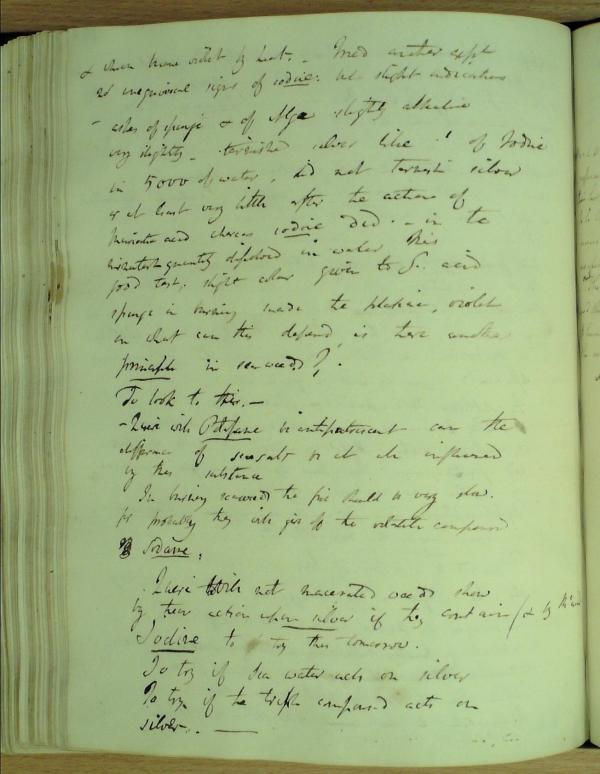 & when more violet by heat. - Tried another expt
no unequivocal signs of iodine: but slight indications
- ashes of sponge & of Algae slightly alkaline
very slightly - tarnished silver like 1 of Iodine
in 5000 of water, did not tarnish silver
or at least very little after the action of
Muriatic acid whereas iodine did. - in the
minutest quantity dissolved in water this
good test; slight colour given to S. acid
sponge in burning made the platina, violet
on what can this depend, is there another
principle in sea weeds?.
To look to this. -
- Query will Potassane be antiputrescent can the
difference of sea salt be at all influenced
by this substance
In burning seaweed the fire should be very slow.
for probably they will give off the volatile compound
of Iodane.
Query Will not macerated weeds show
by their action upon silver if they contain (& by
Iodine to try this tomorrow.
To try if sea water acts on silver
To try if the triple compound acts on
silver. -